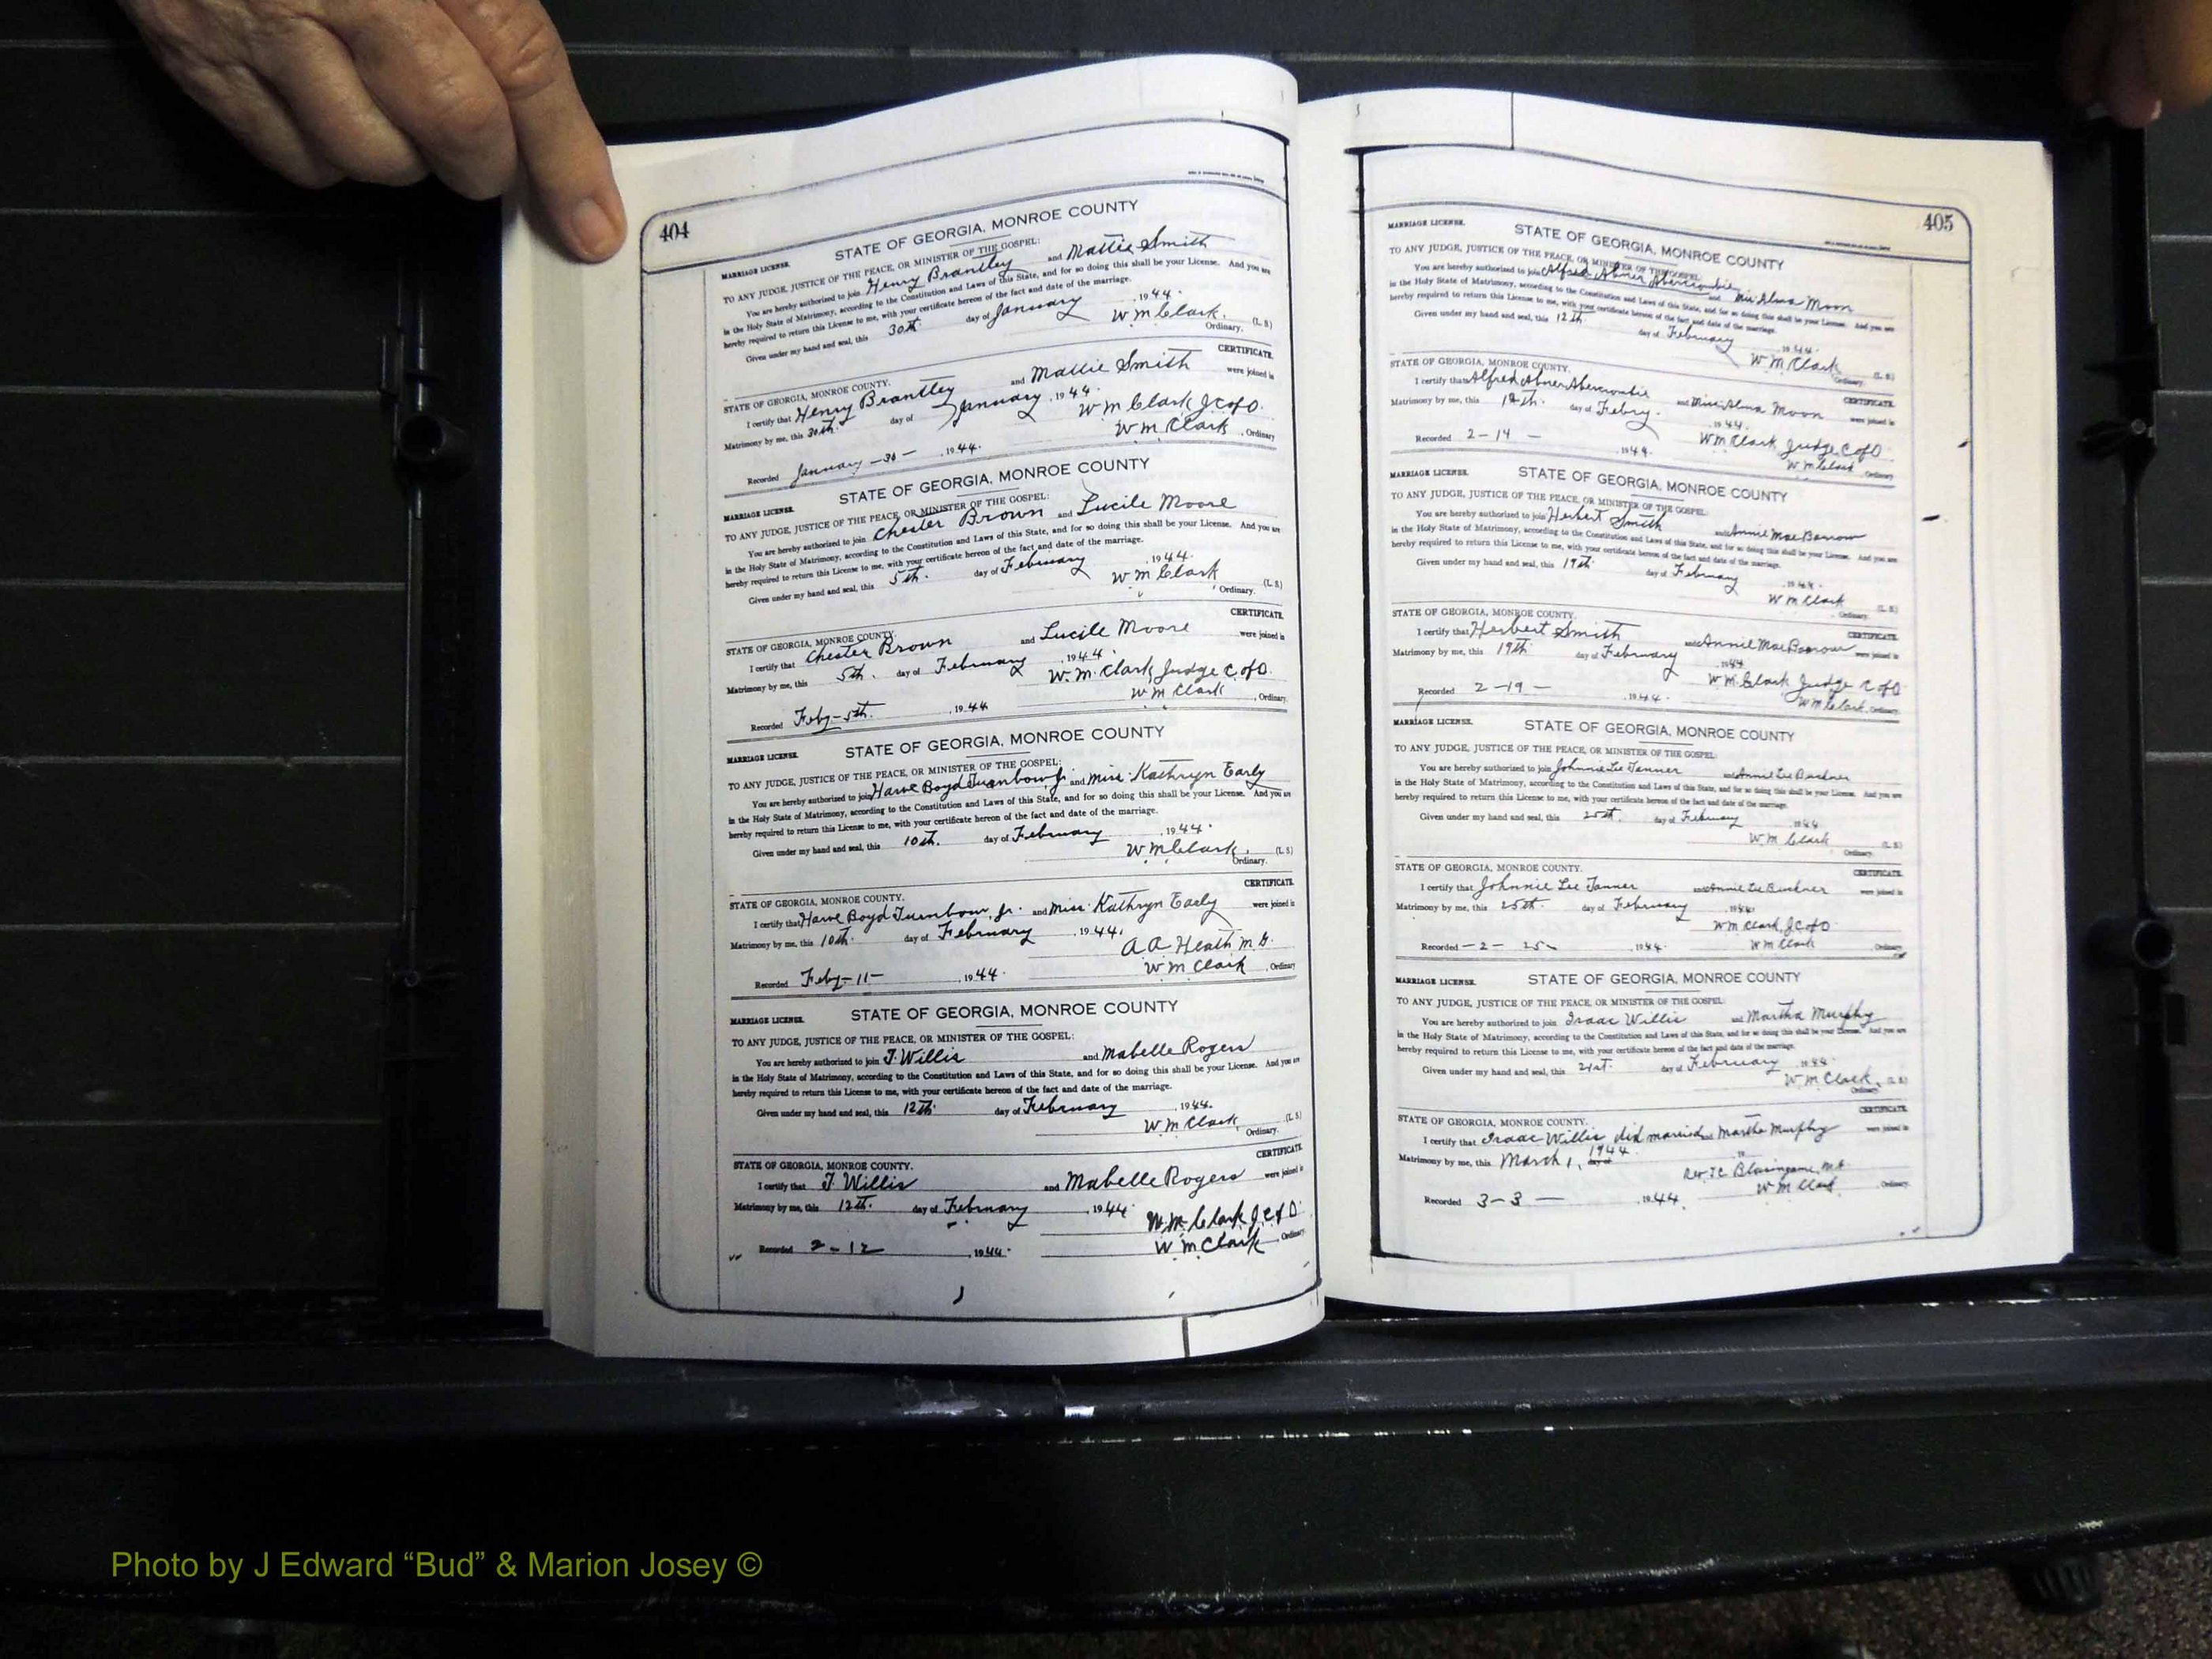 404
STATE OF GEORGIA, MONROE COUNTY
MARRIAGE LICENSE.
TO ANY JUDGE, JUSTICE OF THE PEACE, OR MINISTER OF THE GOSPEL:
You are hereby authorized to join Henry Brantley and Mattie Smith
in the Holy State of Matrimony, according to the Constitution and Laws of this State, and for so doing this shall be your License. And you are
hereby required to return this License to me, with your certificate hereon of the fact and date of the marriage.
Given under my hand and seal, this 30th. day of January, 1944.
W M Clark. (L. S.)
Ordinary.
CERTIFICATE.
STATE OF GEORGIA, MONROE COUNTY.
I certify that Henry Brantley and Mattie Smith were joined in
Matrimony by me, this 30th. day of January, 1944.
W M Clark J C of O.
Recorded January-30-, 1944. W M Clark, Ordinary
STATE OF GEORGIA, MONROE COUNTY
MARRIAGE LICENSE.
TO ANY JUDGE, JUSTICE OF THE PEACE, OR MINISTER OF THE GOSPEL:
You are hereby authorized to join Chester Brown and Lucile Moore
in the Holy State of Matrimony, according to the Constitution and Laws of this State, and for so doing this shall be your License. And you are
hereby required to return this License to me, with your certificate hereon of the fact and date of the marriage.
Given under my hand and seal, this 5th. day of February, 1944.
W M Clark (L. S.)
Ordinary.
CERTIFICATE.
STATE OF GEORGIA, MONROE COUNTY.
I certify that Chester Brown and Lucile Moore were joined in
Matrimony by me, this 5th. day of February, 1944.
W. M. Clark, Judge C of O.
Recorded Feby-5th., 1944 W M Clark, Ordinary.
STATE OF GEORGIA, MONROE COUNTY
MARRIAGE LICENSE.
TO ANY JUDGE, JUSTICE OF THE PEACE, OR MINISTER OF THE GOSPEL:
You are hereby authorized to join Boyd Turnbow, Jr. and Miss Kathryn Early
in the Holy State of Matrimony, according to the Constitution and Laws of this State, and for so doing this shall be your License. And you are
hereby required to return this License to me, with your certificate hereon of the fact and date of the marriage.
Given under my hand and seal, this 10th. day of February, 1944.
W M Clark. (L. S.)
Ordinary.
CERTIFICATE.
STATE OF GEORGIA, MONROE COUNTY.
I certify that Boyd Turnbow, Jr. and Miss Kathryn Early were joined in
Matrimony by me, this 10th. day of February, 1944.
A A Heath M. G.
Recorded Feby-11-, 1944. W M Clark, Ordinary
STATE OF GEORGIA, MONROE COUNTY
MARRIAGE LICENSE.
TO ANY JUDGE, JUSTICE OF THE PEACE, OR MINISTER OF THE GOSPEL:
You are hereby authorized to join J. Willis and Mabelle Rogers
in the Holy State of Matrimony, according to the Constitution and Laws of this State, and for so doing this shall be your License. And you are
hereby required to return this License to me, with your certificate hereon of the fact and date of the marriage.
Given under my hand and seal, this 12th. day of February, 1944.
W M Clark, (L. S.)
Ordinary.
CERTIFICATE.
STATE OF GEORGIA, MONROE COUNTY.
I certify that J. Willis and Mabelle Rogers were joined in
Matrimony by me, this 12th. day of February, 1944.
W. M. Clark J C of O
Recorded 2-12, 1944. W M Clark, Ordinary
405
MARRIAGE LICENSE.
STATE OF GEORGIA, MONROE COUNTY
TO ANY JUDGE, JUSTICE OF THE PEACE, OR MINISTER OF THE GOSPEL:
You are hereby authorized to join Alfred Abner Abercrombie and Miss Alma Moon
in the Holy State of Matrimony, according to the Constitution and Laws of this State, and for so doing this shall be your License. And you are
hereby required to return this License to me, with your certificate hereon of the fact and date of the marriage.
Given under my hand and seal, this 12th. day of February, 1944.
W M Clark (L. S.)
Ordinary.
CERTIFICATE.
STATE OF GEORGIA, MONROE COUNTY.
I certify that Alfred Abner Abercrombie and Miss Alma Moon were joined in
Matrimony by me, this 12th. day of Febry., 1944.
W M Clark Judge C of O.
Recorded 2-14-, 1944. W M Clark, Ordinary
MARRIAGE LICENSE.
STATE OF GEORGIA, MONROE COUNTY
TO ANY JUDGE, JUSTICE OF THE PEACE, OR MINISTER OF THE GOSPEL:
You are hereby authorized to join Herbert Smith and Annie Mae Barrow
in the Holy State of Matrimony, according to the Constitution and Laws of this State, and for so doing this shall be your License. And you are
hereby required to return this License to me, with your certificate hereon of the fact and date of the marriage.
Given under my hand and seal, this 19th. day of February, 1944.
W M Clark (L. S.)
Ordinary.
CERTIFICATE.
STATE OF GEORGIA, MONROE COUNTY.
I certify that Herbert Smith and Annie Mae Barrow were joined in
Matrimony by me, this 19th. day of February, 1944.
W M Clark Judge C of O
Recorded 2-19-, 1944. W M Clark, Ordinary
MARRIAGE LICENSE.
STATE OF GEORGIA, MONROE COUNTY
TO ANY JUDGE, JUSTICE OF THE PEACE, OR MINISTER OF THE GOSPEL:
You are hereby authorized to join Johnnie Lee Tanner and Annie Lee Buckner
in the Holy State of Matrimony, according to the Constitution and Laws of this State, and for so doing this shall be your License. And you are
hereby required to return this License to me, with your certificate hereon of the fact and date of the marriage.
Given under my hand and seal, this 25th. day of February, 1944
W M Clark (L. S.)
Ordinary.
CERTIFICATE.
STATE OF GEORGIA, MONROE COUNTY.
I certify that Johnnie Lee Tanner and Annie Lee Buckner were joined in
Matrimony by me, this 25th. day of February, 1944.
W M Clark, J C of O.
Recorded -2-25-, 1944. W M Clark Ordinary.
MARRIAGE LICENSE.
STATE OF GEORGIA, MONROE COUNTY
TO ANY JUDGE, JUSTICE OF THE PEACE, OR MINISTER OF THE GOSPEL:
You are hereby authorized to join Isaac Willis and Martha Murphy
in the Holy State of Matrimony, according to the Constitution and Laws of this State, and for so doing this shall be your License. And you are
hereby required to return this License to me, with your certificate hereon of the fact and date of the marriage.
Given under my hand and seal, this 21st. day of February, 1944.
W. M. Clark, (L. S.)
Ordinary.
CERTIFICATE.
STATE OF GEORGIA, MONROE COUNTY.
I certify that Isaac Willis did married and Martha Murphy were joined in
Matrimony by me, this March 1, 1944
Rev. J C Blasingame, M. G.
Recorded 3-3-, 1944. W M Clark, Ordinary.
Photo by J Edward “Bud” & Marion Josey ©